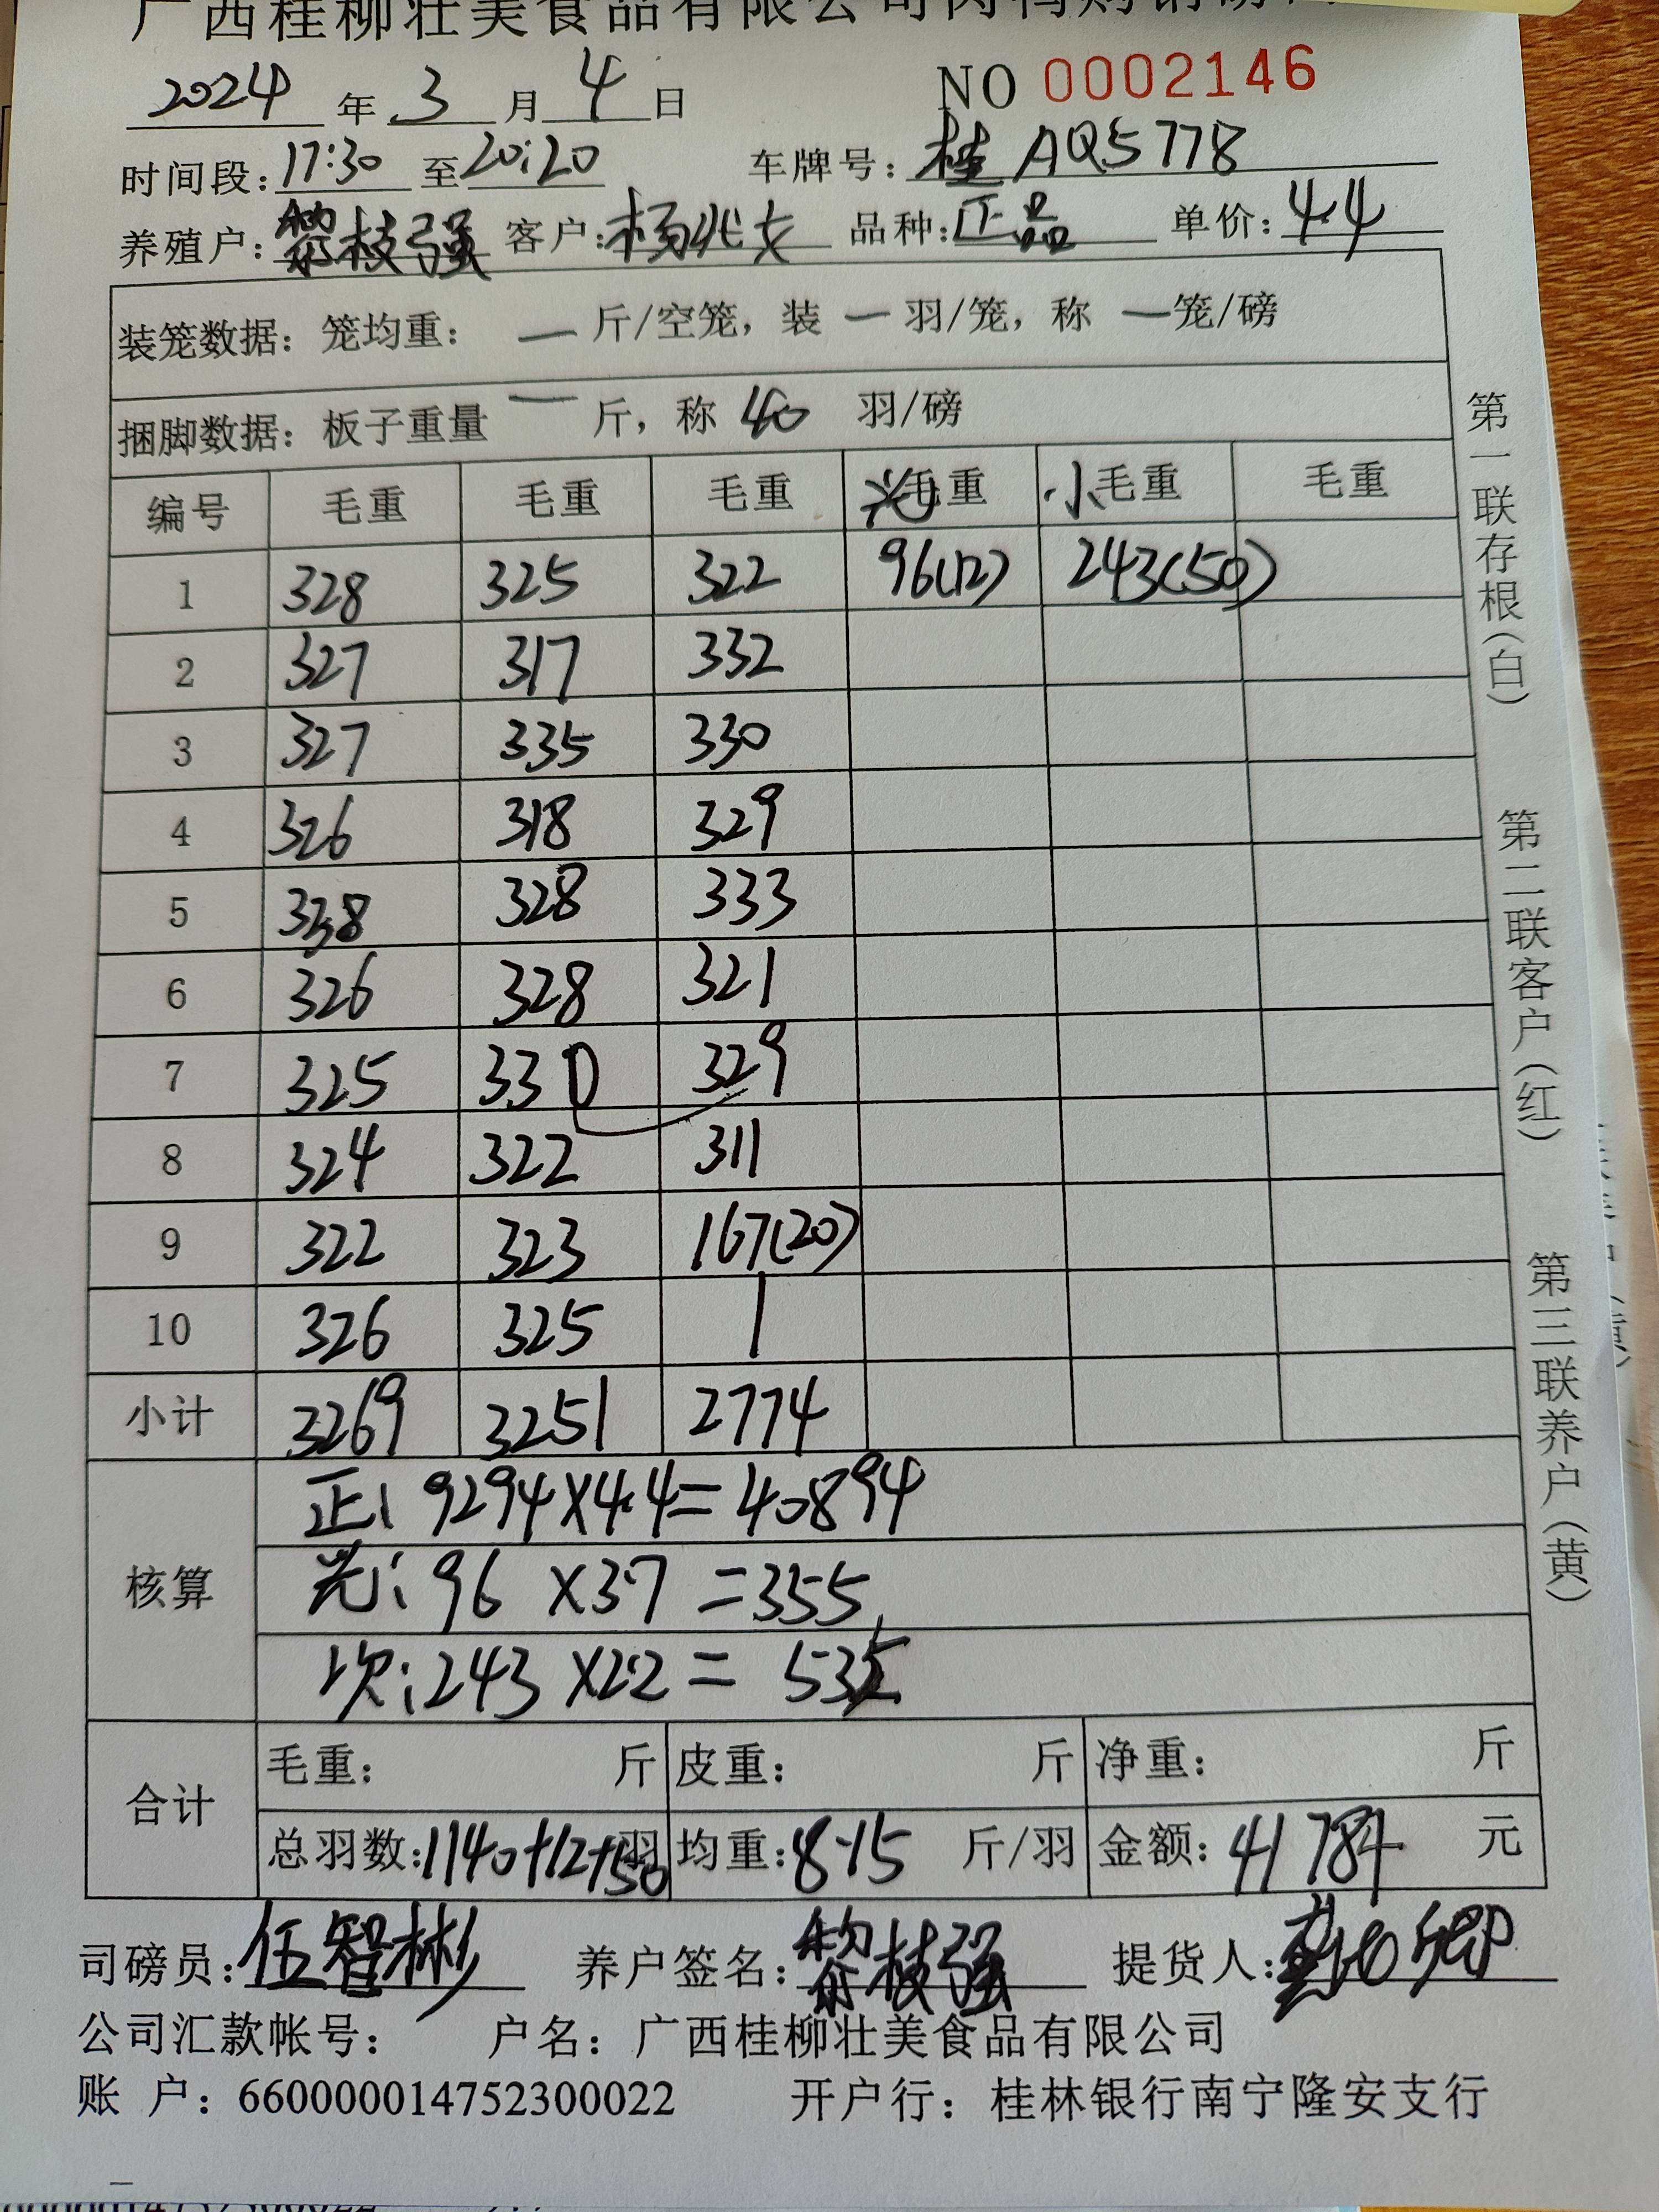 广西桂柳壮美食品有限公司肉鸭购销磅
2024 年 3 月 4 日 NO 0002146
时间段:17:30 至 20:20 车牌号:桂AQ5778
养殖户:黎枝强 客户:杨兆 品种:正品 单价:4.4
装笼数据:笼均重: — 斤/空笼,装 — 羽/笼,称 — 笼/磅
捆脚数据:板子重量 — 斤,称 40 羽/磅
编号 毛重 毛重 毛重 光毛重 小毛重 毛重
1 328 325 322 96(12) 243(50)
2 327 317 332
3 327 335 330
4 326 318 329
5 338 328 333
6 326 328 321
7 325 330 329
8 324 322 311
9 322 323 167(20)
10 326 325
小计 3269 3251 2774
核算
正: 9294×4.4=40894
光: 96 ×3.7 =355
次: 243 ×2.2 = 535
合计
毛重: 斤 皮重: 斤 净重: 斤
总羽数:1140+12+50羽 均重:8.15 斤/羽 金额:41784 元
司磅员:伍智彬 养户签名:黎枝强 提货人:
公司汇款帐号: 户名:广西桂柳壮美食品有限公司
账 户:660000014752300022 开户行:桂林银行南宁隆安支行
第一联存根(白) 第二联客户(红) 第三联养户(黄)